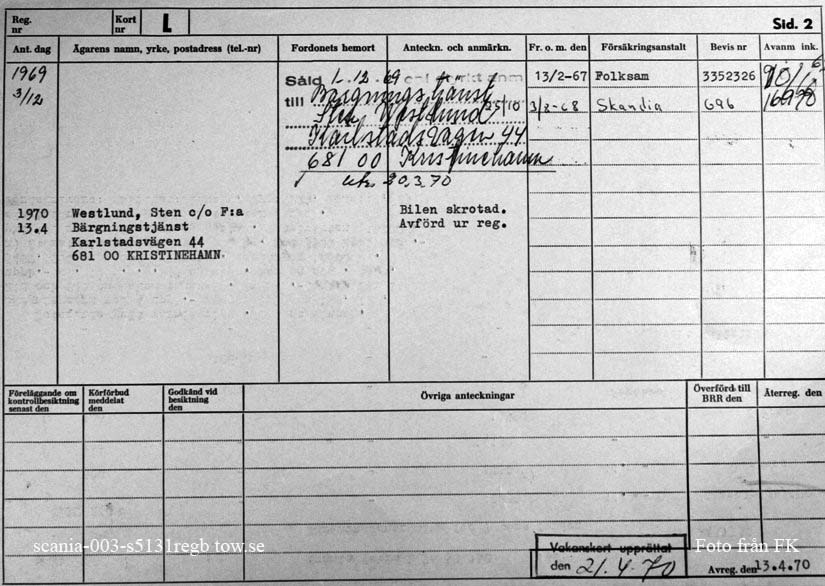 Reg. nr
Kort nr L
Sid. 2
Ant. dag Ägarens namn, yrke, postadress (tel.-nr) Fordonets hemort Anteckn. och anmärkn. Fr. o. m. den Försäkringsanstalt Bevis nr Avanm ink.
1969 Såld 1-12-69 13/2-67 Folksam 3352326
3/12 till Bärgningstjänst 3/2-68 Skandia 696
Sten Westlund 25/10
Karlstadsvägen 44
681 00 Kristinehamn
20.3.70
1970 Westlund, Sten c/o F:a Bilen skrotad.
13.4 Bärgningstjänst Avförd ur reg.
Karlstadsvägen 44
681 00 KRISTINEHAMN
Föreläggande om kontrollbesiktning senast den Körförbud meddelat den Godkänd vid besiktning den Övriga anteckningar Överförd till BRR den Återreg. den
scania-003-s5131regb tow.se
Vakanskort upprättat
den 21.4.70
Foto från FK
Avreg. den 13.4.70